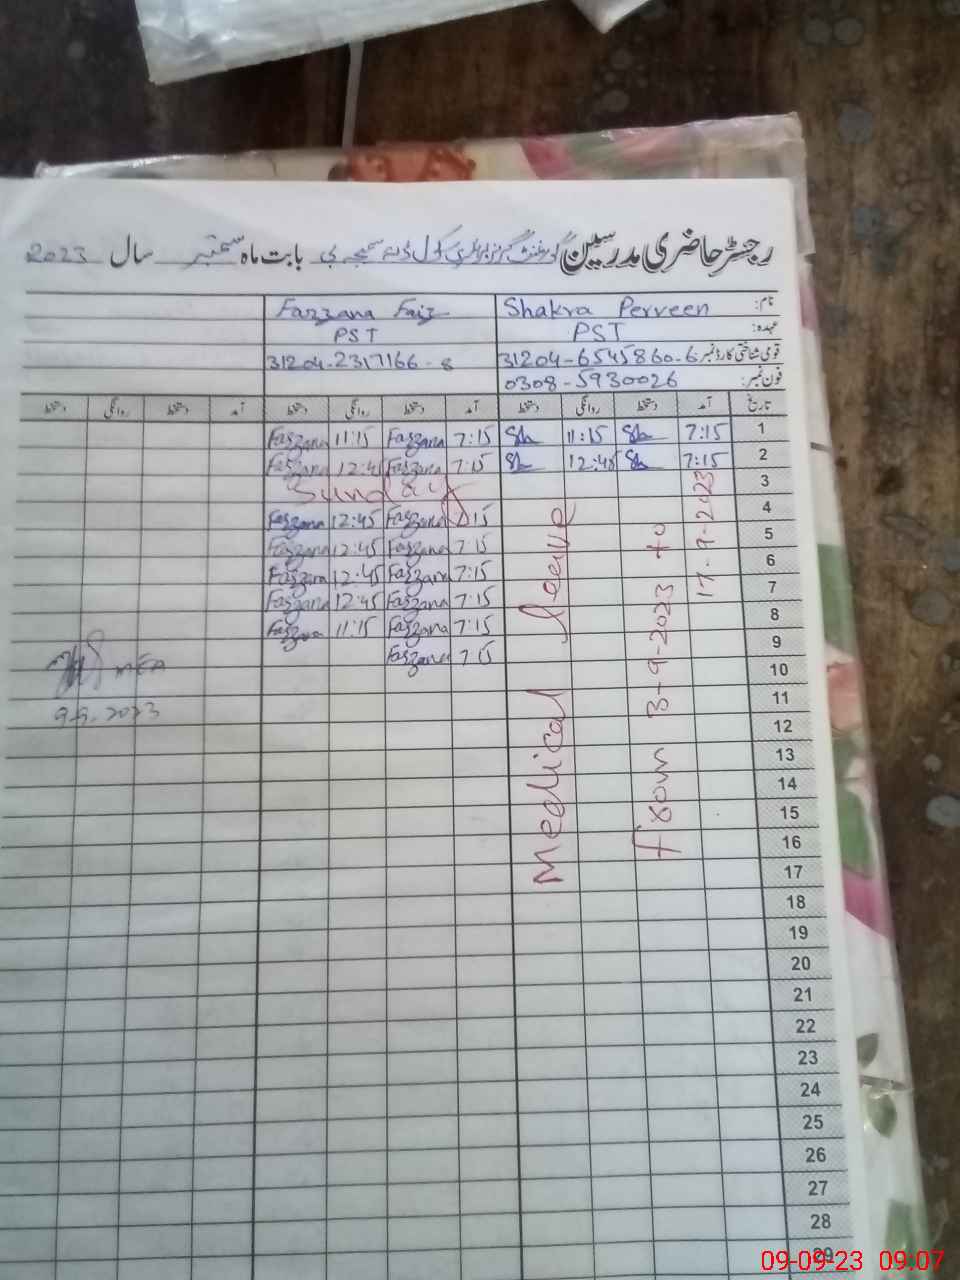 رجسٹر حاضری مدرسین گورنمنٹ گرلز پرائمری سکول بابت ماہ ستمبر سال 2023
نام: Shakra Perveen Fazzana Faiz
عہدہ: PST PST
قومی شناختی کارڈ نمبر 31204-6545860-6 31204-2317166-8
فون نمبر: 0308-5930026
تاریخ آمد دستخط روانگی دستخط آمد دستخط روانگی دستخط آمد دستخط روانگی دستخط
1 7:15 Sh 11:15 Sh 7:15 Fazzana 11:15 Fazzana
2 7:15 Sh 12:45 Sh 7:15 Fazzana 12:45 Fazzana
3 Sunday
4 7:15 Fazzana 12:45 Fazzana
5 7:15 Fazzana 12:45 Fazzana
6 7:15 Fazzana 12:45 Fazzana
7 7:15 Fazzana 12:45 Fazzana
8 7:15 Fazzana 11:15 Fazzana
9 7:15 Fazzana
10
11
12
13
14
15
16
17
18
19
20
21
22
23
24
25
26
27
28
29
Medical leave
from 3-9-2023 to
17-9-2023
MEA
9-9-2023
09-09-23 09:07